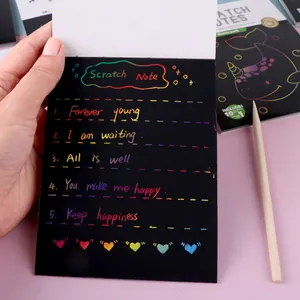 SCRATCH
NOTES
Scratch Note
1. Forever young
2. I am waiting.
3. All is well
4. You make me happy
5. Keep happiness